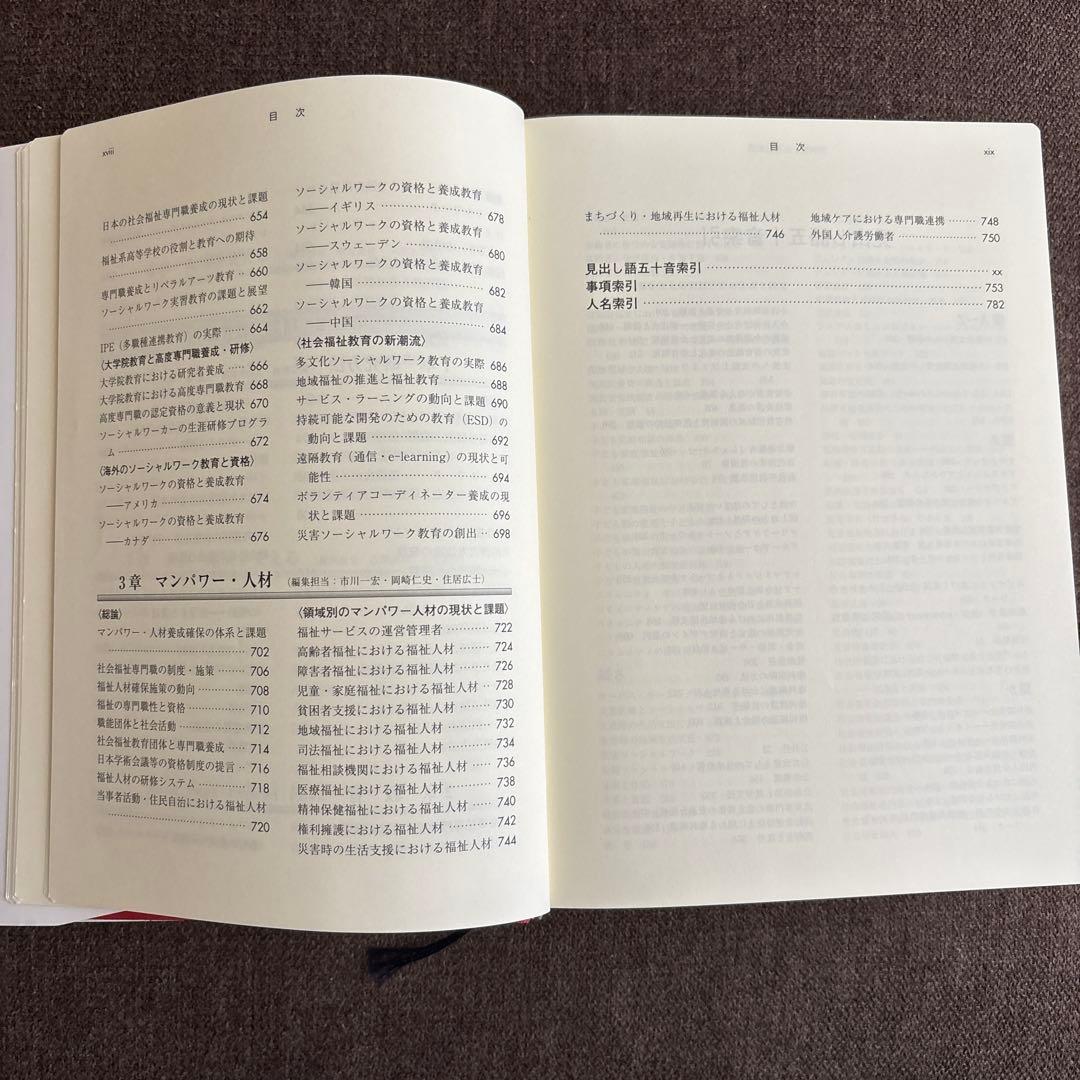 目 次
xviii
日本の社会福祉専門職養成の現状と課題
……………………… 654
福祉系高等学校の役割と教育への期待
……………………… 658
専門職養成とリベラルアーツ教育‥ 660
ソーシャルワーク実習教育の課題と展望
……………………… 662
IPE（多職種連携教育）の実際‥‥ 664
〈大学院教育と高度専門職養成・研修〉
大学院教育における研究者養成‥‥ 666
大学院教育における高度専門職教育 668
高度専門職の認定資格の意義と現状 670
ソーシャルワーカーの生涯研修プログラ
ム……………………… 672
〈海外のソーシャルワーク教育と資格〉
ソーシャルワークの資格と養成教育
――アメリカ……………… 674
ソーシャルワークの資格と養成教育
――カナダ……………… 676
ソーシャルワークの資格と養成教育
――イギリス……………… 678
ソーシャルワークの資格と養成教育
――スウェーデン…………… 680
ソーシャルワークの資格と養成教育
――韓国………………… 682
ソーシャルワークの資格と養成教育
――中国………………… 684
〈社会福祉教育の新潮流〉
多文化ソーシャルワーク教育の実際 686
地域福祉の推進と福祉教育………… 688
サービス・ラーニングの動向と課題 690
持続可能な開発のための教育（ESD）の
動向と課題……………… 692
遠隔教育（通信・e-learning）の現状と可
能性…………………… 694
ボランティアコーディネーター養成の現
状と課題………………… 696
災害ソーシャルワーク教育の創出‥ 698
3章 マンパワー・人材 （編集担当：市川一宏・岡崎仁史・住居広士）
〈総論〉
マンパワー・人材養成確保の体系と課題
……………………… 702
社会福祉専門職の制度・施策……… 706
福祉人材確保施策の動向………… 708
福祉の専門性と資格…………… 710
職能団体と社会活動…………… 712
社会福祉教育団体と専門職養成…… 714
日本学術会議等の資格制度の提言‥ 716
福祉人材の研修システム………… 718
当事者活動・住民自治における福祉人材
……………………… 720
〈領域別のマンパワー人材の現状と課題〉
福祉サービスの運営管理者………… 722
高齢者福祉における福祉人材……… 724
障害者福祉における福祉人材……… 726
児童・家庭福祉における福祉人材‥ 728
貧困者支援における福祉人材……… 730
地域福祉における福祉人材………… 732
司法福祉における福祉人材………… 734
福祉相談機関における福祉人材…… 736
医療福祉における福祉人材………… 738
精神保健福祉における福祉人材…… 740
権利擁護における福祉人材………… 742
災害時の生活支援における福祉人材 744
目 次
xix
まちづくり・地域再生における福祉人材
……………………… 746
地域ケアにおける専門職連携……… 748
外国人介護労働者……………… 750
見出し語五十音索引……………………………… xx
事項索引……………………………………… 753
人名索引……………………………………… 782